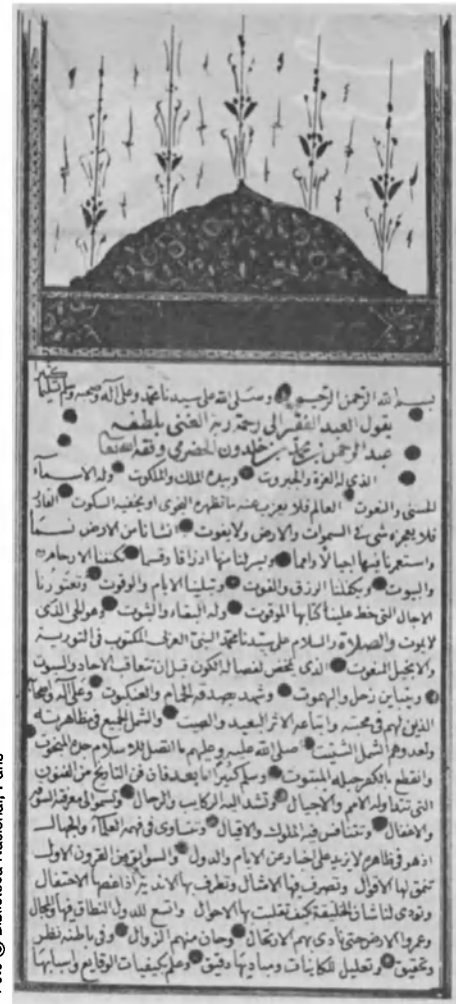 بسم الله الرحمن الرحيم وصلى الله على سيدنا محمد وعلى آله وصحبه وسلم تسليما
يقول العبد الفقير إلى رحمة ربه الغني بلطفه
عبد الرحمن بن محمد بن خلدون الحضرمي وفقه الله
الذي له العزة والجبروت وبيده الملك والملكوت وله الاسماء
الحسنى والنعوت العالم فلا يعزب عنه ما تظهره النجوى او يخفيه السكوت القادر
فلا يعجزه شي في السموات والارض ولا يفوت انشانا من الارض نسما
واستعمرنا فيها اجيالا وامما ويسر لنا منها ارزاقا وقسما تكنفنا الارحام
والبيوت ويكفلنا الرزق والقوت وتبلينا الايام والوقوت وتعتورنا
الاجال التي خط علينا كتابها الموقوت وله البقاء والثبوت وهو الحي الذي
لا يموت والصلاة والسلام على سيدنا محمد النبي العربي المكتوب في التورية
والانجيل المنعوت الذي تمخض لفصاله الكون قبل ان تتعاقب الاحاد والسبوت
ويتباين زحل والبهموت وشهد بصدقه الحمام والعنكبوت وعلى آله وصحابه
الذين لهم في محبته واتباعه الاثر البعيد والصيت والشمل الجميع في مظاهرته
ولعدوهم الشمل الشتيت صلى الله عليه وعليهم ما اتصل للاسلام جده المبخوت
وانقطع بالكفر حبله المبتوت وسلم كثيرا اما بعد فان فن التاريخ من الفنون
التي تتداوله الامم والاجيال وتشد اليه الركايب والرحال وتسمو الى معرفته السوقة
والاغفال وتتنافس فيه الملوك والاقيال وتتساوى في فهمه العلماء والجهال
اذ هو في ظاهره لا يزيد على اخبار عن الايام والدول والسوابق من القرون الاول
تنمق لها الاقوال وتصرف فيها الامثال وتطرف بها الاندية اذا غصها الاحتفال
وتودي لنا شان الخليقة كيف تقلبت بها الاحوال واتسع للدول النطاق فيها والمجال
وعمروا الارض حتى نادى بهم الارتحال وحان منهم الزوال وفي باطنه نظر
وتحقيق وتعليل للكاينات ومباديها دقيق وعلم بكيفيات الوقايع واسبابها
Foto © Biblioteca Nacional, París